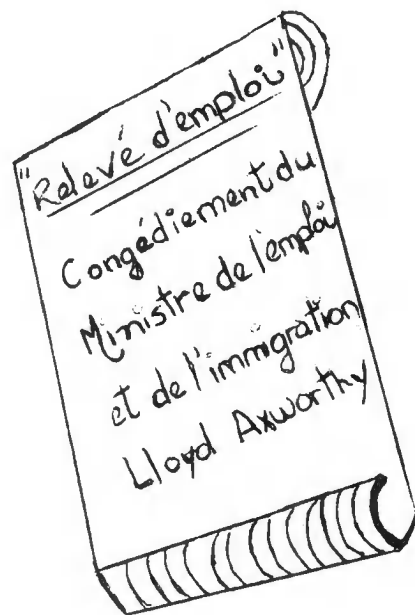 "Relevé d'emploi"
Congédiement du
Ministre de l'emploi
et de l'immigration
Lloyd Axworthy